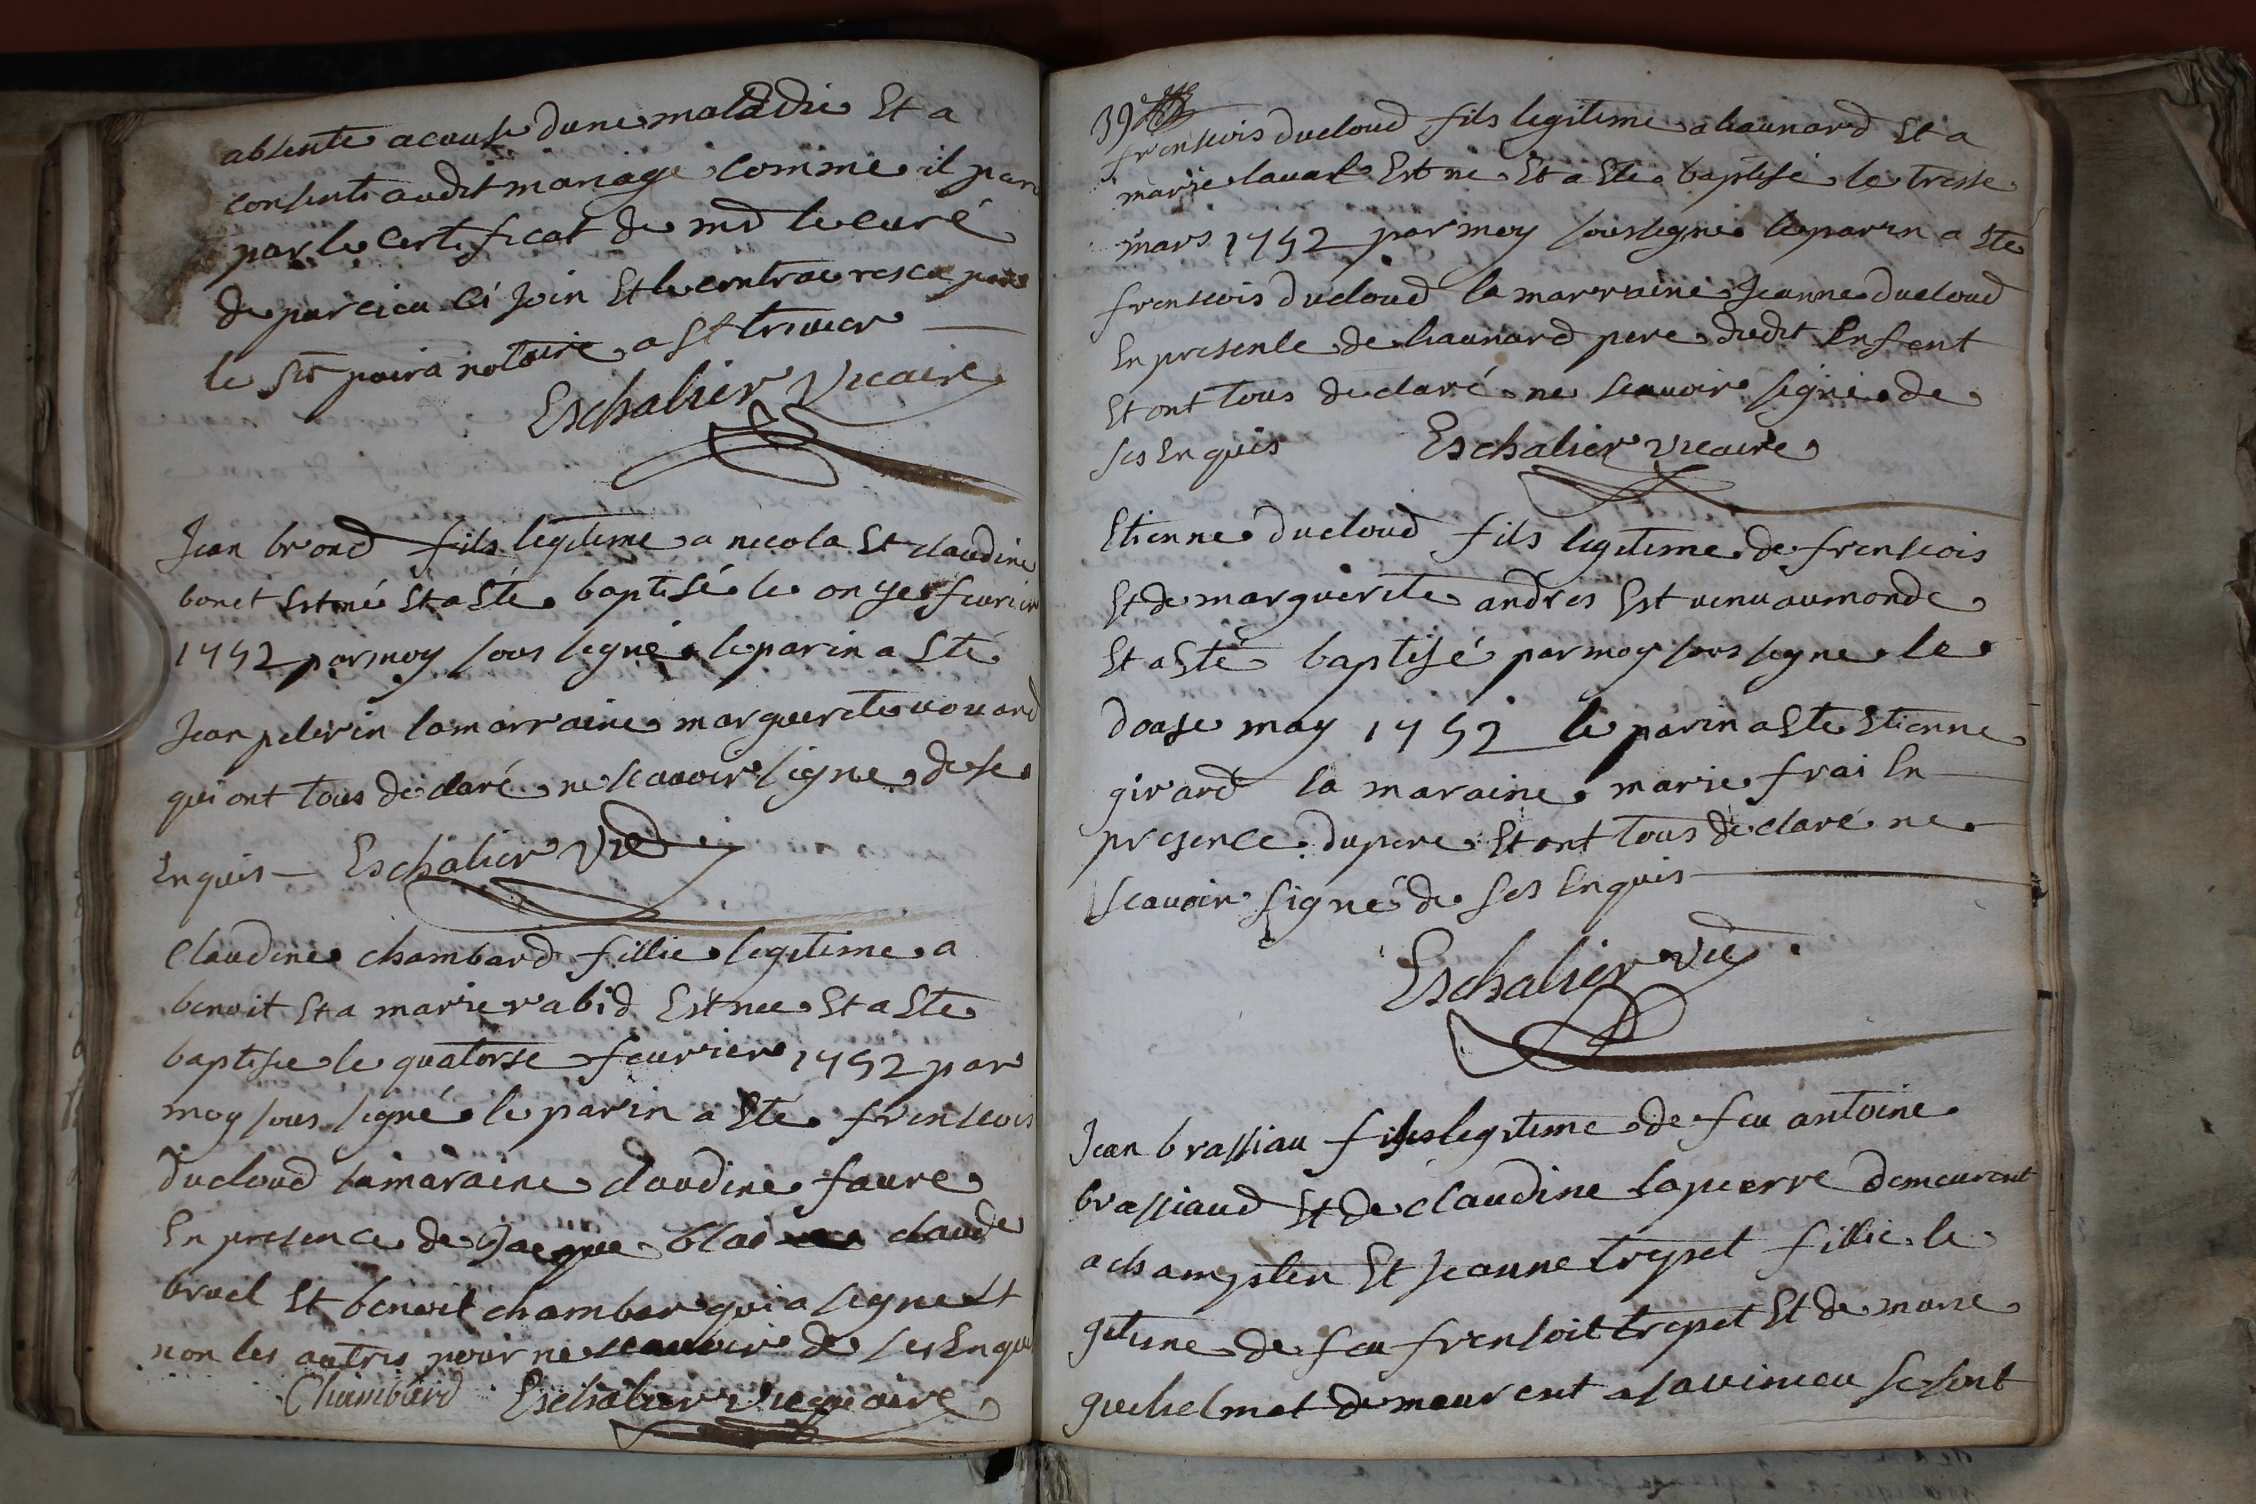 absente a cause dune maladie Et a
consenti audit mariage comme il
par le certificat de mr le curé
de parcieu ci join Et le contrac
le sr notaire a st trivier
Eschalier Vicaire
Jean brond fils legitime a necola Et claudine
bonet Est né Et a Eté baptisé le onze feurier
1752 par moy sous signé le parin a Eté
Jean pelerin la marraine marguerite
qui ont tous declaré ne scauoir signe de se
Enquis Eschalier Vic
Claudine chambard fillie legitime a
benoit Et a marie rabid Est nee Et a Ete
baptisee le quatorse feurier 1752 par
moy sous signé le parin a Eté frenscois
ducloud la maraine claudine faure
En presence de Jacque blai claude
bruel Et benoit chambar qui a signe Et
non les autres pour ne scauoir de ses Enqui
Chambard Eschalier Viequaire
39
frenscois ducloud fils legitime a leaunard Et a
marie laual Est ne Et a Ete baptisé le tresse
mars 1752 par moy sousigné le parin a Ete
frenscois ducloud la marraine Jeanne ducloud
En presence de leaunard pere dudit Enfent
Et ont tous declaré ne scauoir signe de
ses Enquis Eschalier Vicaire
Etienne ducloud fils legitime de frenscois
Et de marguerite andres Est uenu au monde
Et a Eté baptisé par moy sous signe le
doase may 1752 le parin a Ete Etienne
girard la maraine marie frai En
presence du pere Et ont tous declaré ne
scauoir signé de ses Enquis
Eschalier Vic
Jean brassiau fils legitime de feu antoine
brassiaud Et de claudine lapierre demeurent
a Et Jeanne trepet fillie le
gitime de feu frensoit trepet Et de marie
demeurent a sauinieu se sont